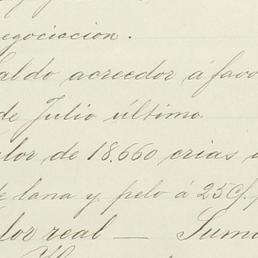 egociacion.
aldo acreedor á favo
de Julio último.
lor de 18.660 crias
de lana y pelo á 25 c/.
lor real — Suma